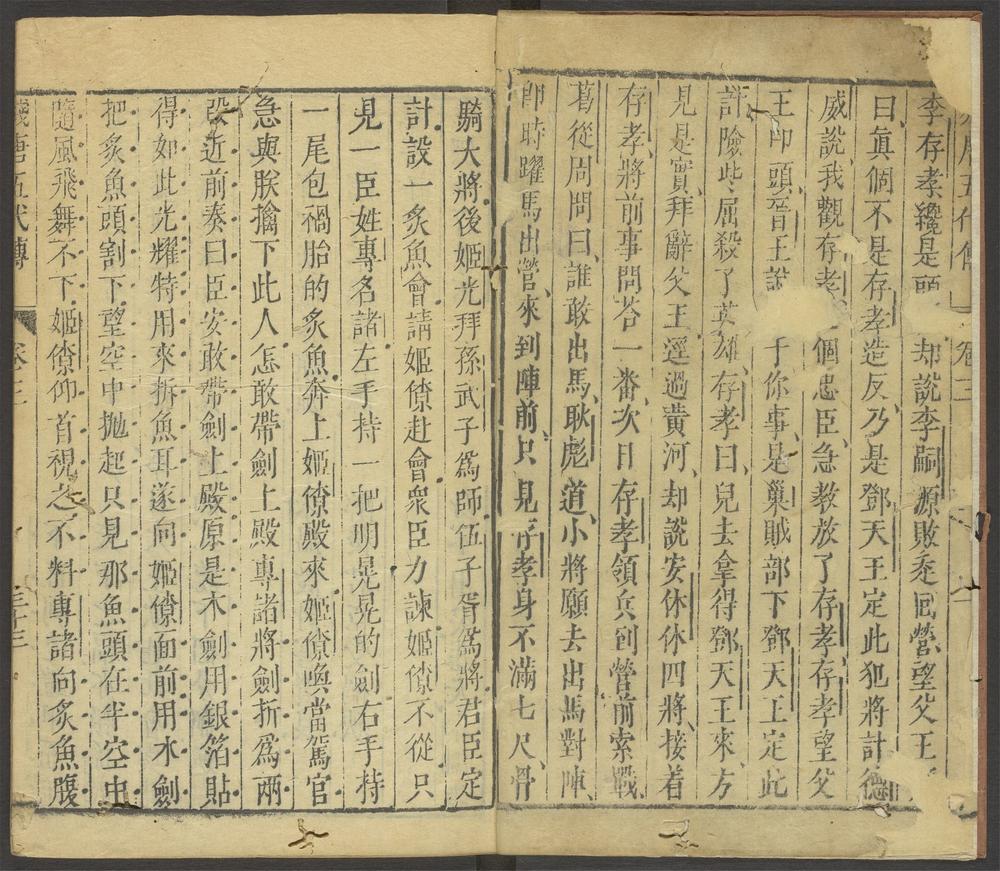 李存孝纔是頭 却說李嗣源敗夌回營望父王
曰真個不是存孝造反乃是鄧天王定此犯將計德
威說我觀存孝 個忠臣急教放了存孝存孝望父
王叩頭晉王說 于你事是巢賊部下鄧天王定此
計險些屈殺了英雄存孝曰兒去拿得鄧天王來方
見是實拜辭父王逕過黃河却說安休休四將接着
存孝將前事問答一番次日存孝領兵到營前索戰
葛從周問曰誰敢出馬耿彪道小將願去出馬對陣
即時躍馬出營來到陣前只見存孝身不滿七尺骨
騎大將後姬光拜孫武子為師伍子胥為將君臣定
計設一炙魚會請姬僚赴會衆臣力諫姬僚不從只
見一臣姓專名諸左手持一把明晃晃的劍右手持
一尾包禍胎的炙魚奔上姬僚殿來姬僚喚當駕官
急與朕擒下此人怎敢帶劍上殿專諸將劍折為兩
段近前奏曰臣安敢帶劍上殿原是木劍用銀箔貼
得如此光耀特用來拆魚耳遂向姬僚面前用水劍
把炙魚頭割下望空中拋起只見那魚頭在半空中
隨風飛舞不下姬僚仰首視之不料專諸向炙魚腹
殘唐五代傳 卷三 三十三